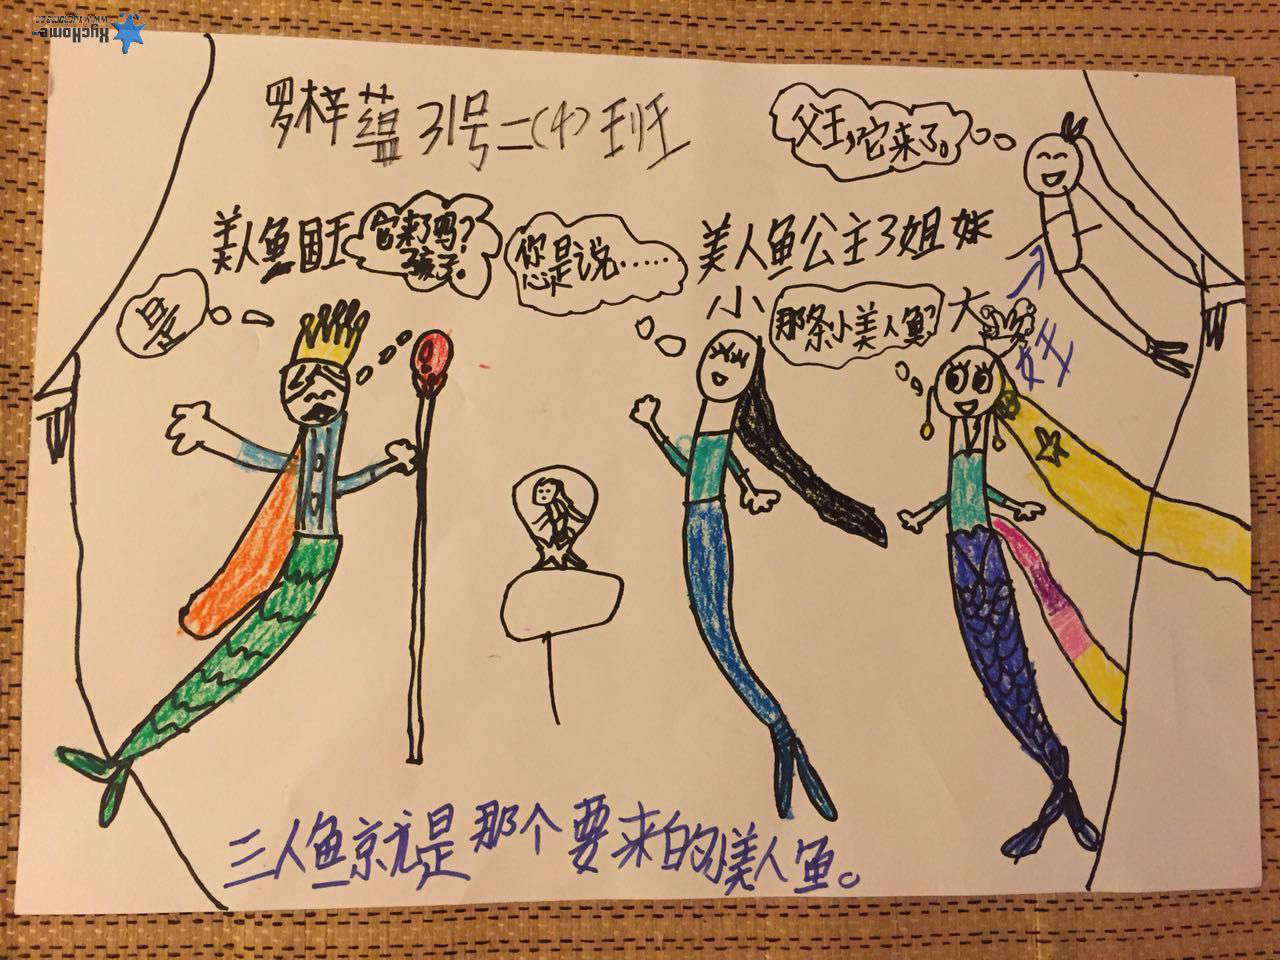 XycHome
罗梓蕴31号二(4)班
父王,它来了。
美人鱼国王
它来了吗?
孩子.
你是说……
美人鱼公主3姐妹
是
小
那条小美人鱼?
大
女王
三人鱼就是那个要来的小美人鱼。